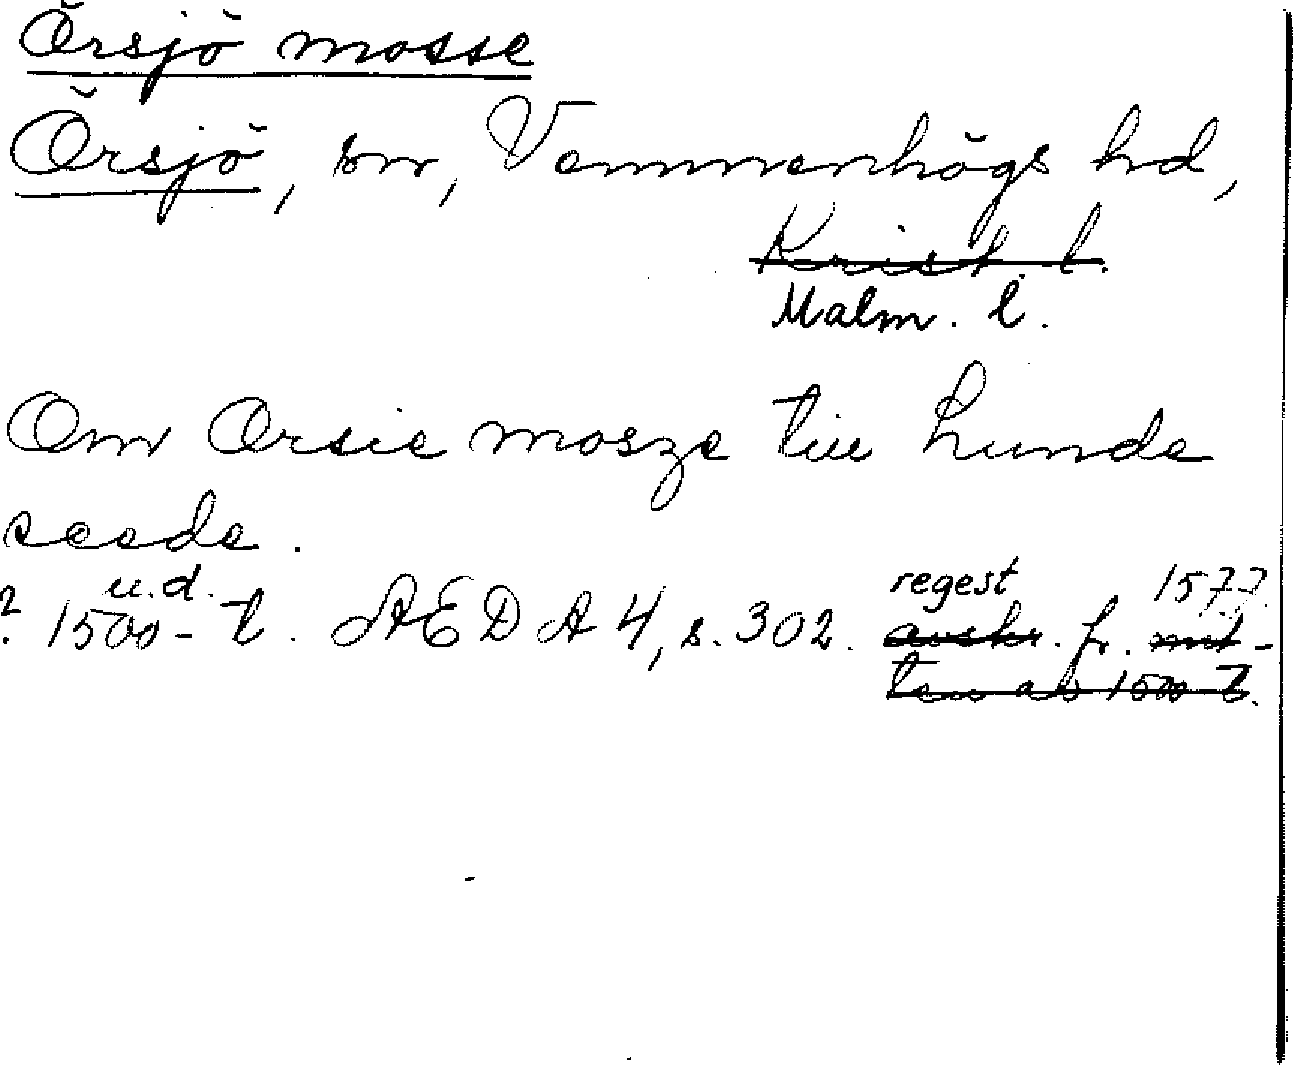 Örsjö mosse
Örsjö, sn, Vemmenhögs hd,
Krist. l.
Malm. l.
Om Ørsie mosze till Lunde
seede.
u.d. regest 1577.
? 1500-t. ÆDA 4, s. 302. avskr. fr. mit-
ten av 1500-t.